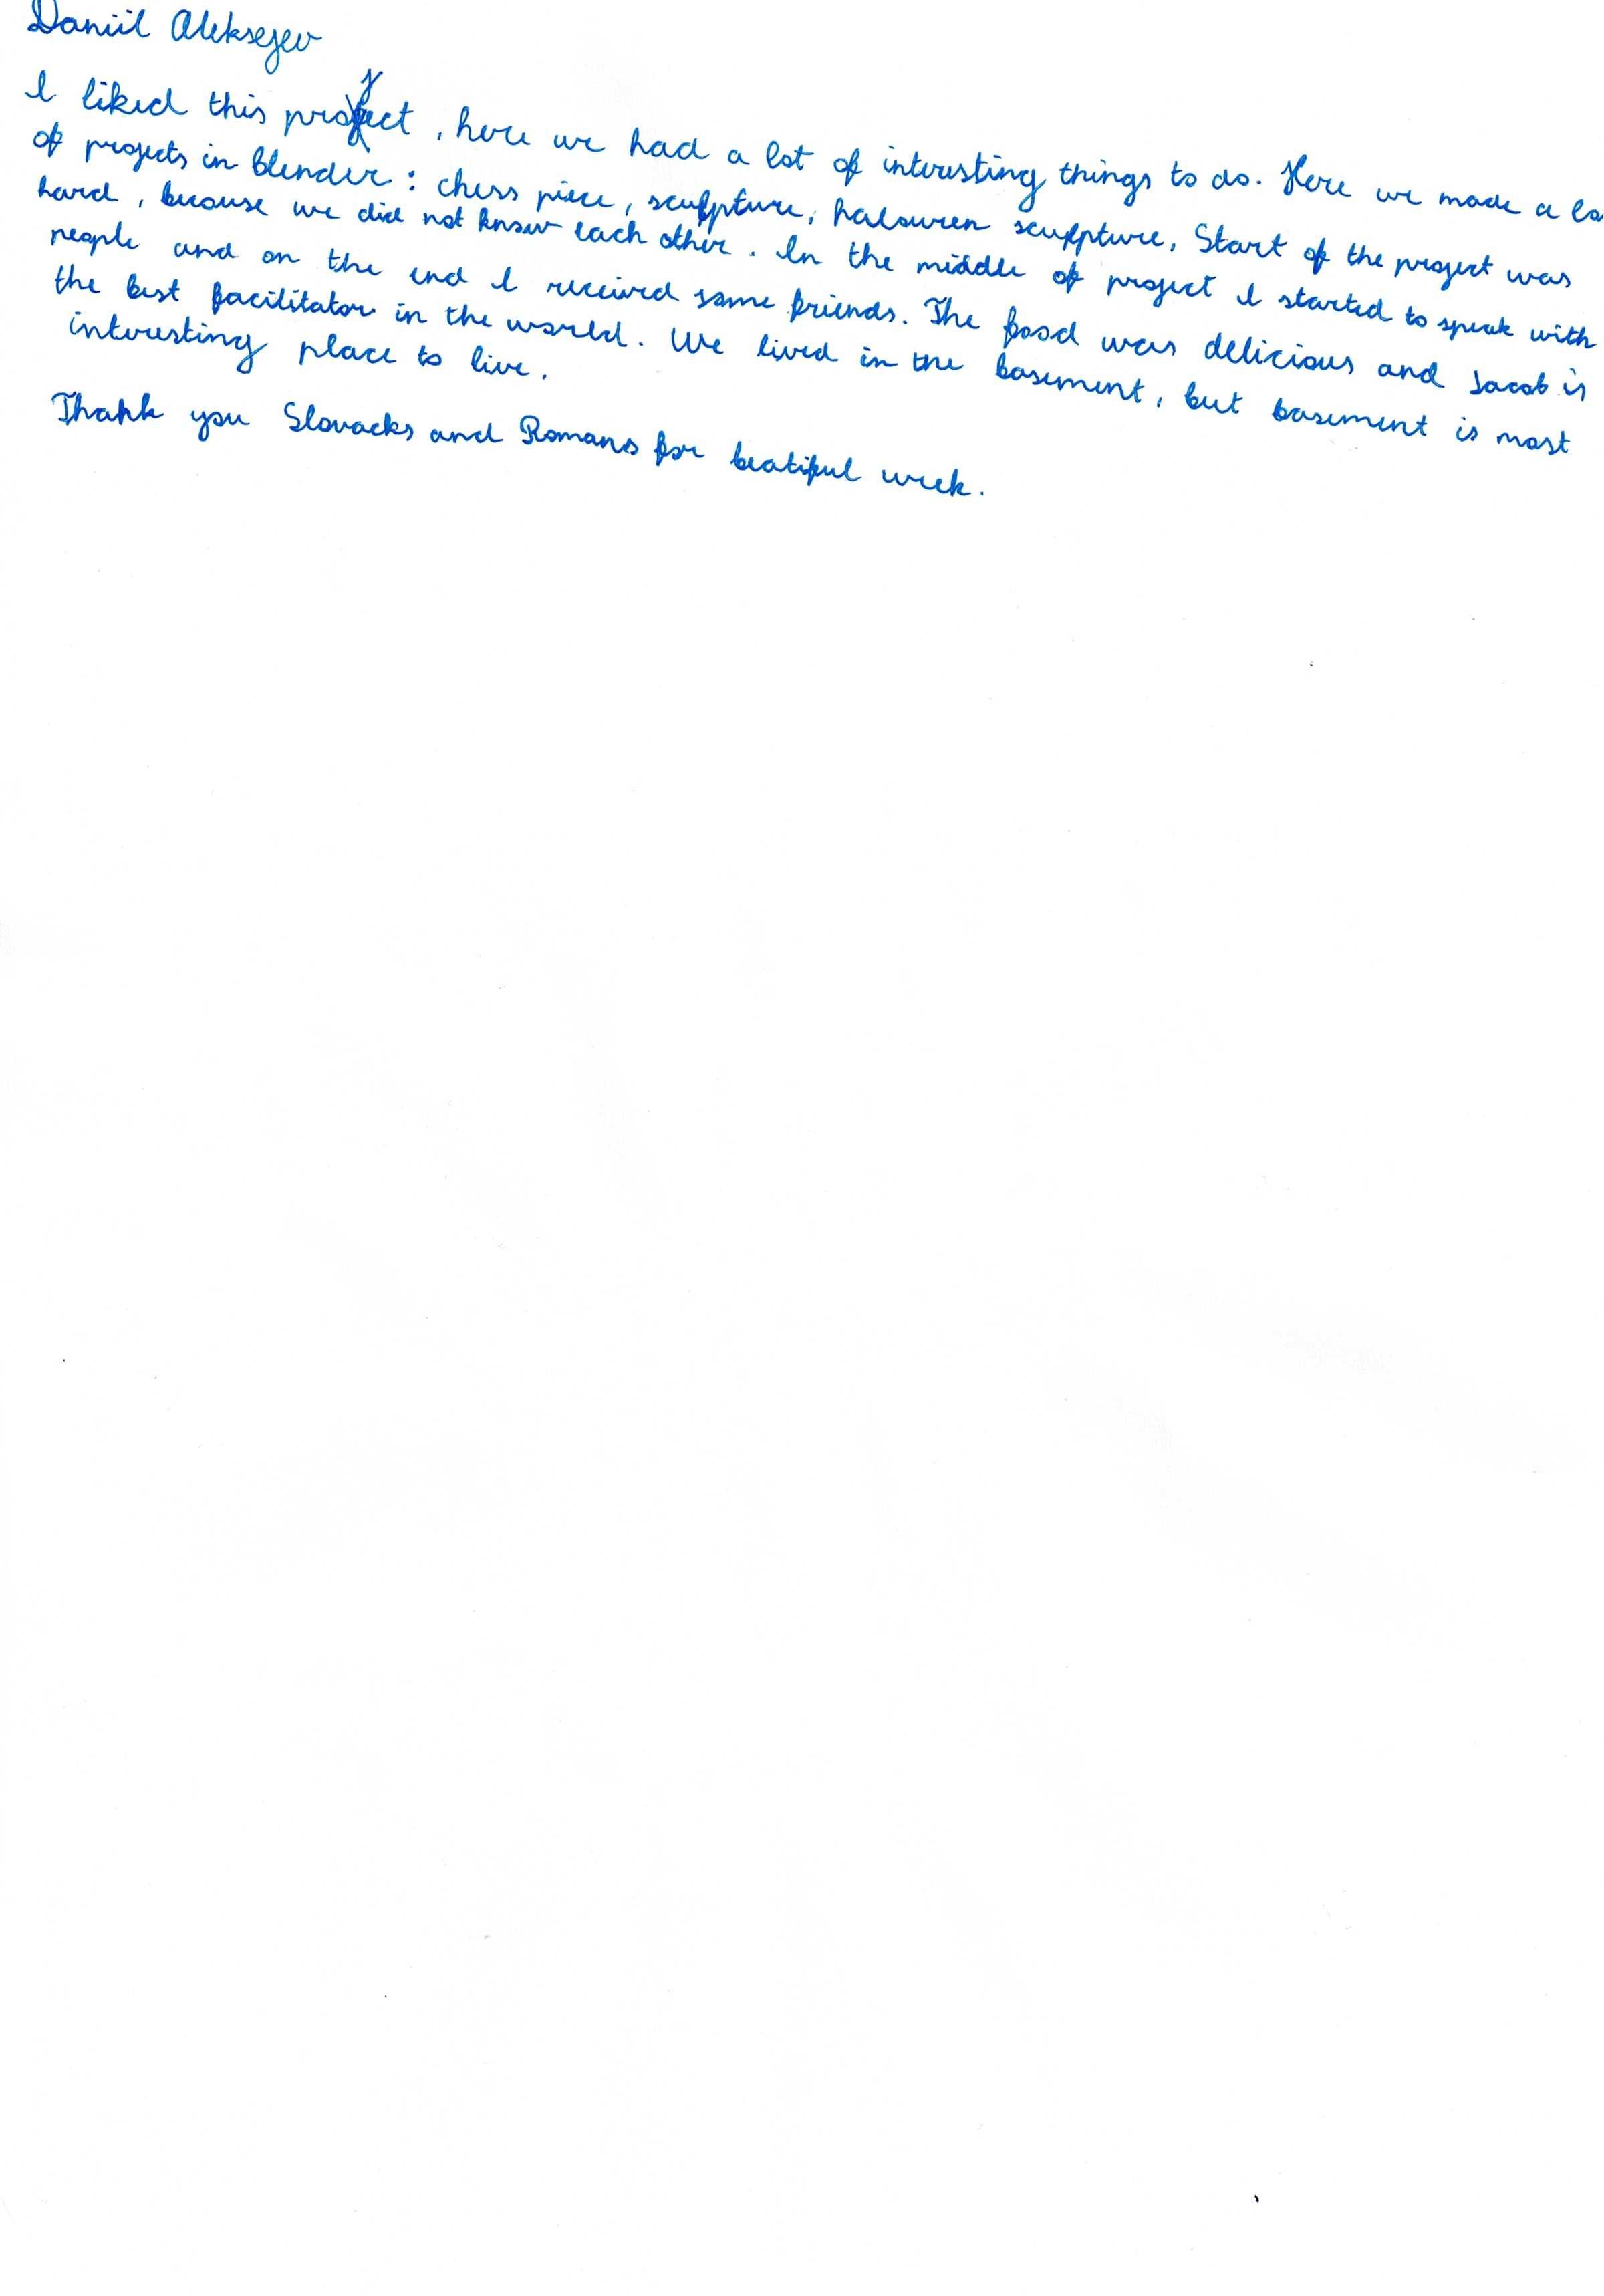 Daniil Aleksejev
I liked this project, here we had a lot of interesting things to do. Here we made a lo
of projects in blender: chess piece, sculpture, halowen sculpture, Start of the project was
hard, becouse we did not know each other. In the middle of project I started to speak with
people and on the end I received some friends. The food was delicious and Jacob is
the best facilitator in the world. We lived in the basement, but basement is most
interesting place to live.
Thank you Slovacks and Romans for beatiful week.